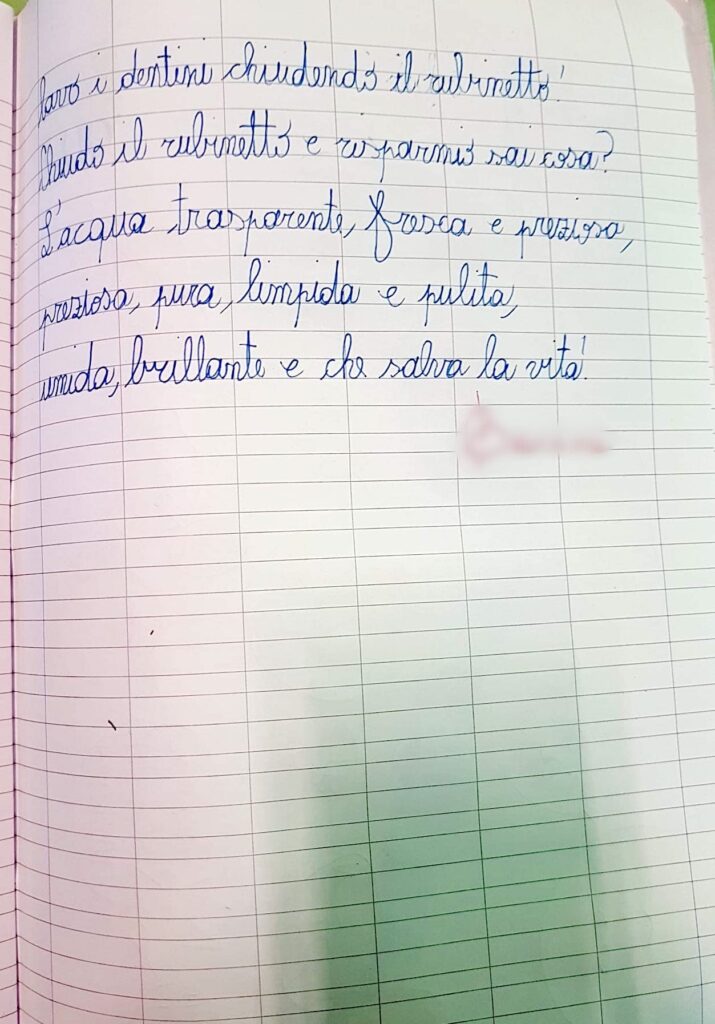 lavo i dentini chiudendo il rubinetto!
Chiudo il rubinetto e risparmio sai cosa?
L'acqua trasparente, fresca e preziosa,
preziosa, pura, limpida e pulita,
umida, brillante e che salva la vita!